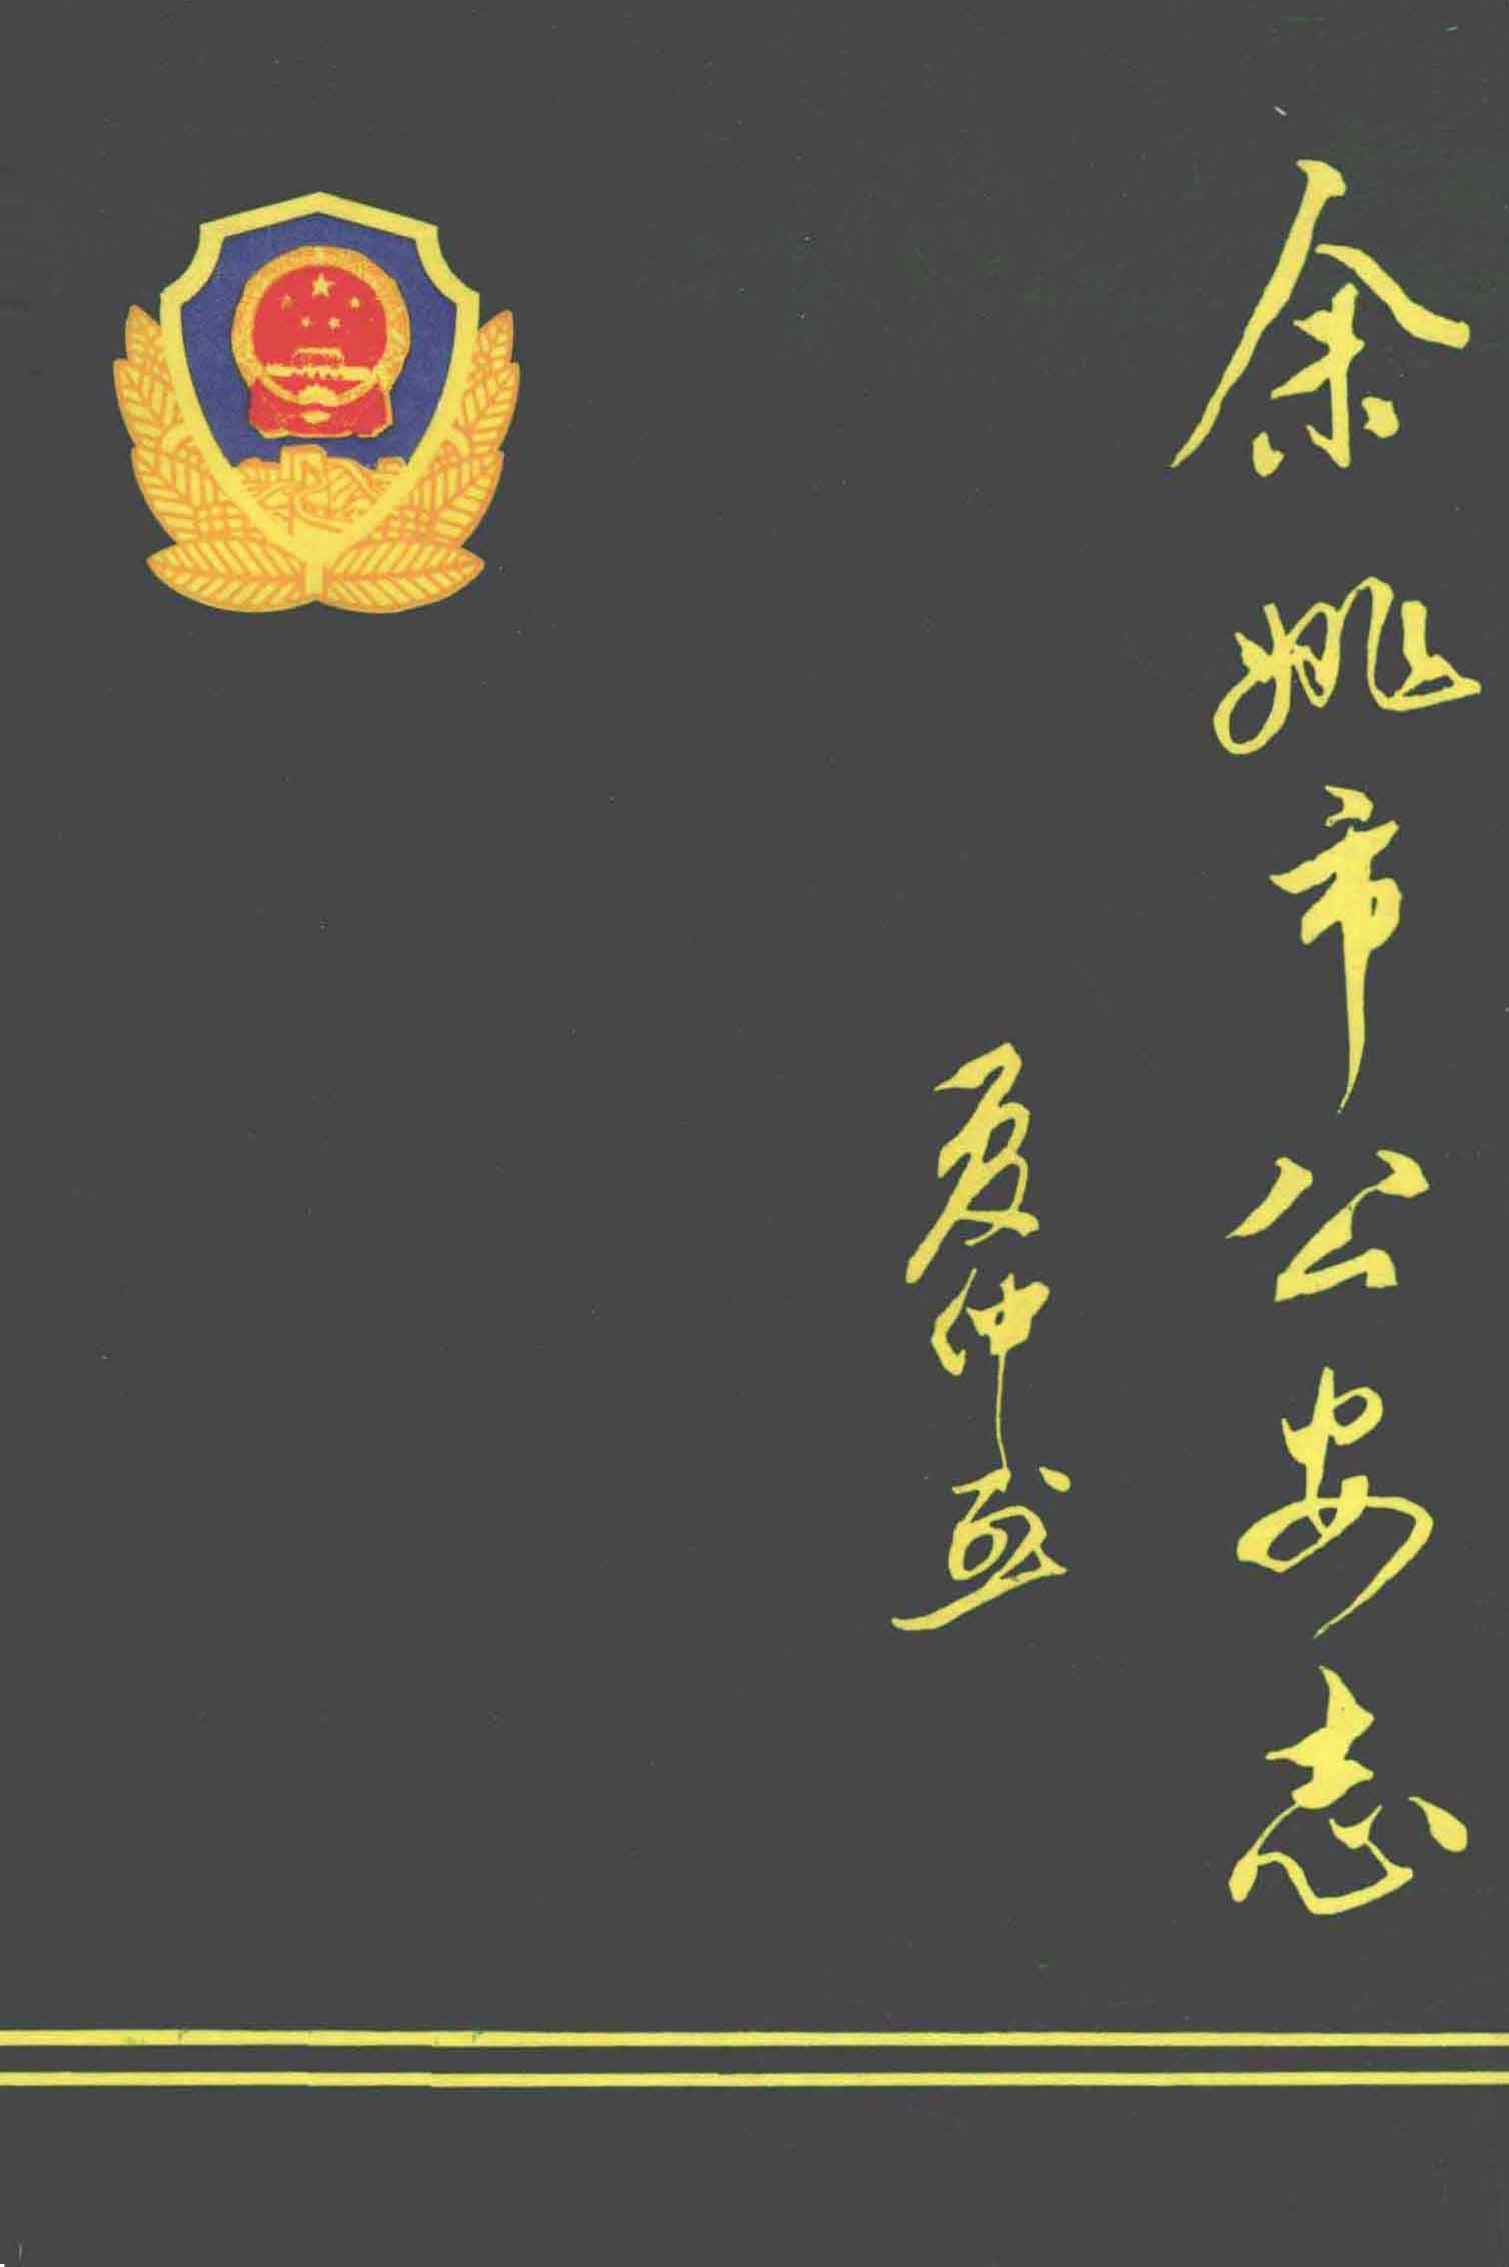 余姚市公安志
夏仲烈